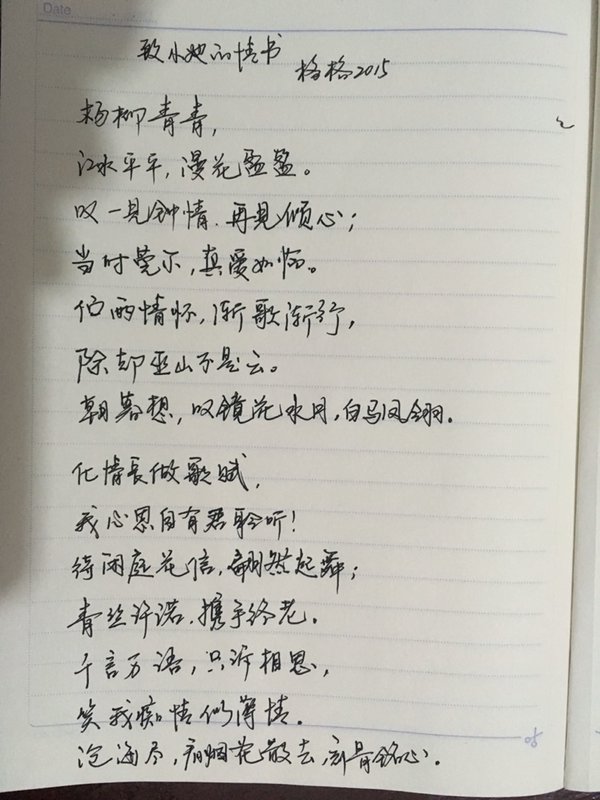 Date
致小她的情书
格格2015
杨柳青青，
江水平平，漫花盈盈。
叹一见钟情，再见倾心；
当时莞尔，真爱如
伯雨情怀，渐歌渐行，
除却巫山不是云。
朝暮想，叹镜花水月，白马凤翎。
化情长做歌赋，
我心思自有君聆听！
待闲庭花信，翩然起舞；
青丝许诺，携手终老。
千言万语，只诉相思，
笑我痴情似薄情。
沧海尽，烟花散去，刻骨铭心。